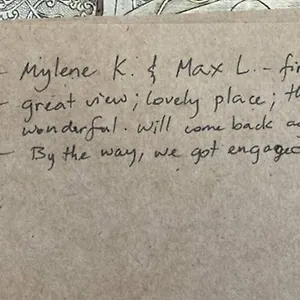 - Mylene K. & Max L. - fi
- great view; lovely place; th
wonderful. will come back a
- By the way, we got engaged